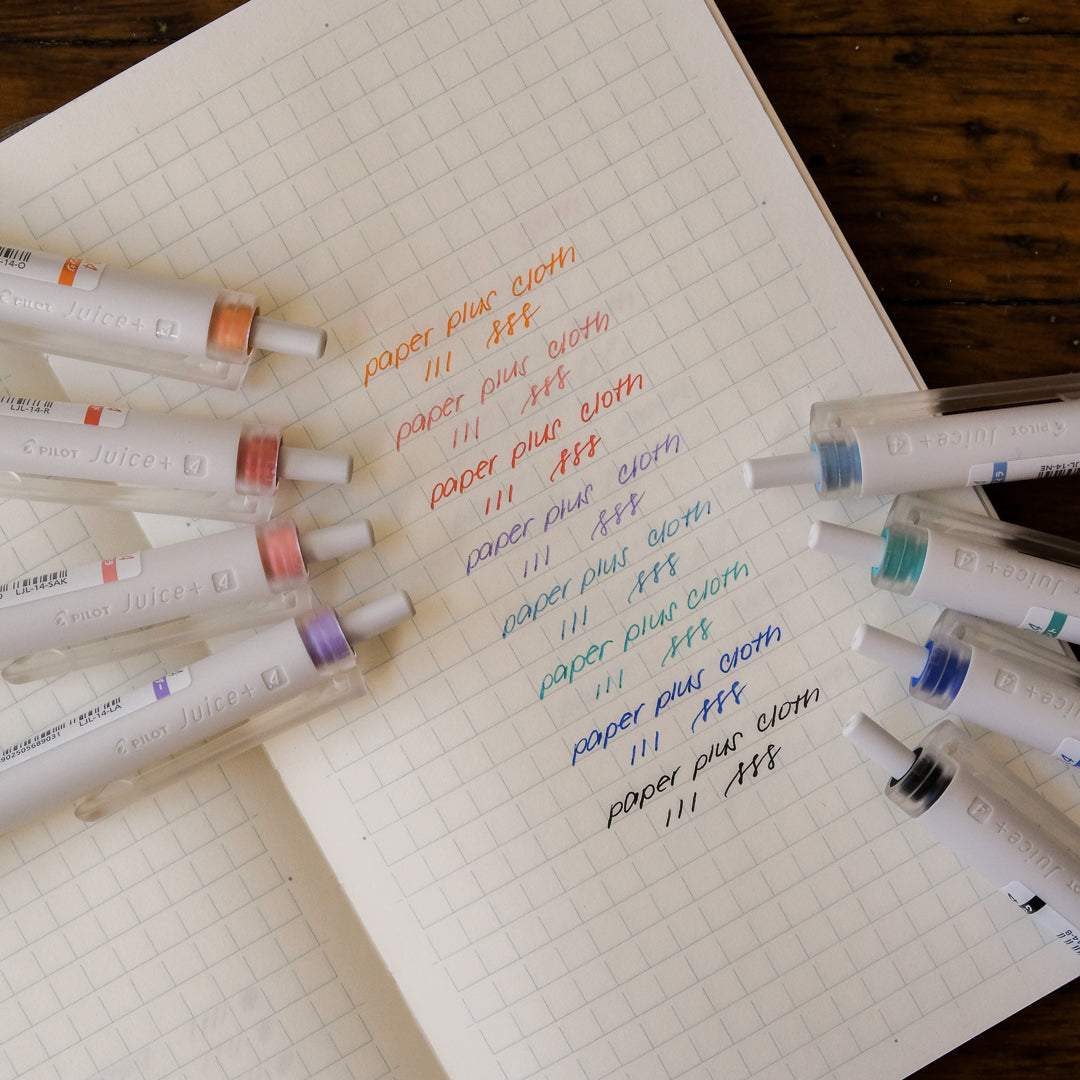 LJL-14-O
PILOT Juice+ 4
LJL-14-R
PILOT Juice+ 4
LJL-14-SAK
PILOT Juice+ 4
LJL-14-LA
902505689031
PILOT Juice+ 4
paper plus cloth
paper plus cloth
paper plus cloth
paper plus cloth
paper plus cloth
paper plus cloth
paper plus cloth
paper plus cloth
PILOT Juice+ 4
JL-14-NE
Juice+ 4
Juice+ 4
Juice+ 4